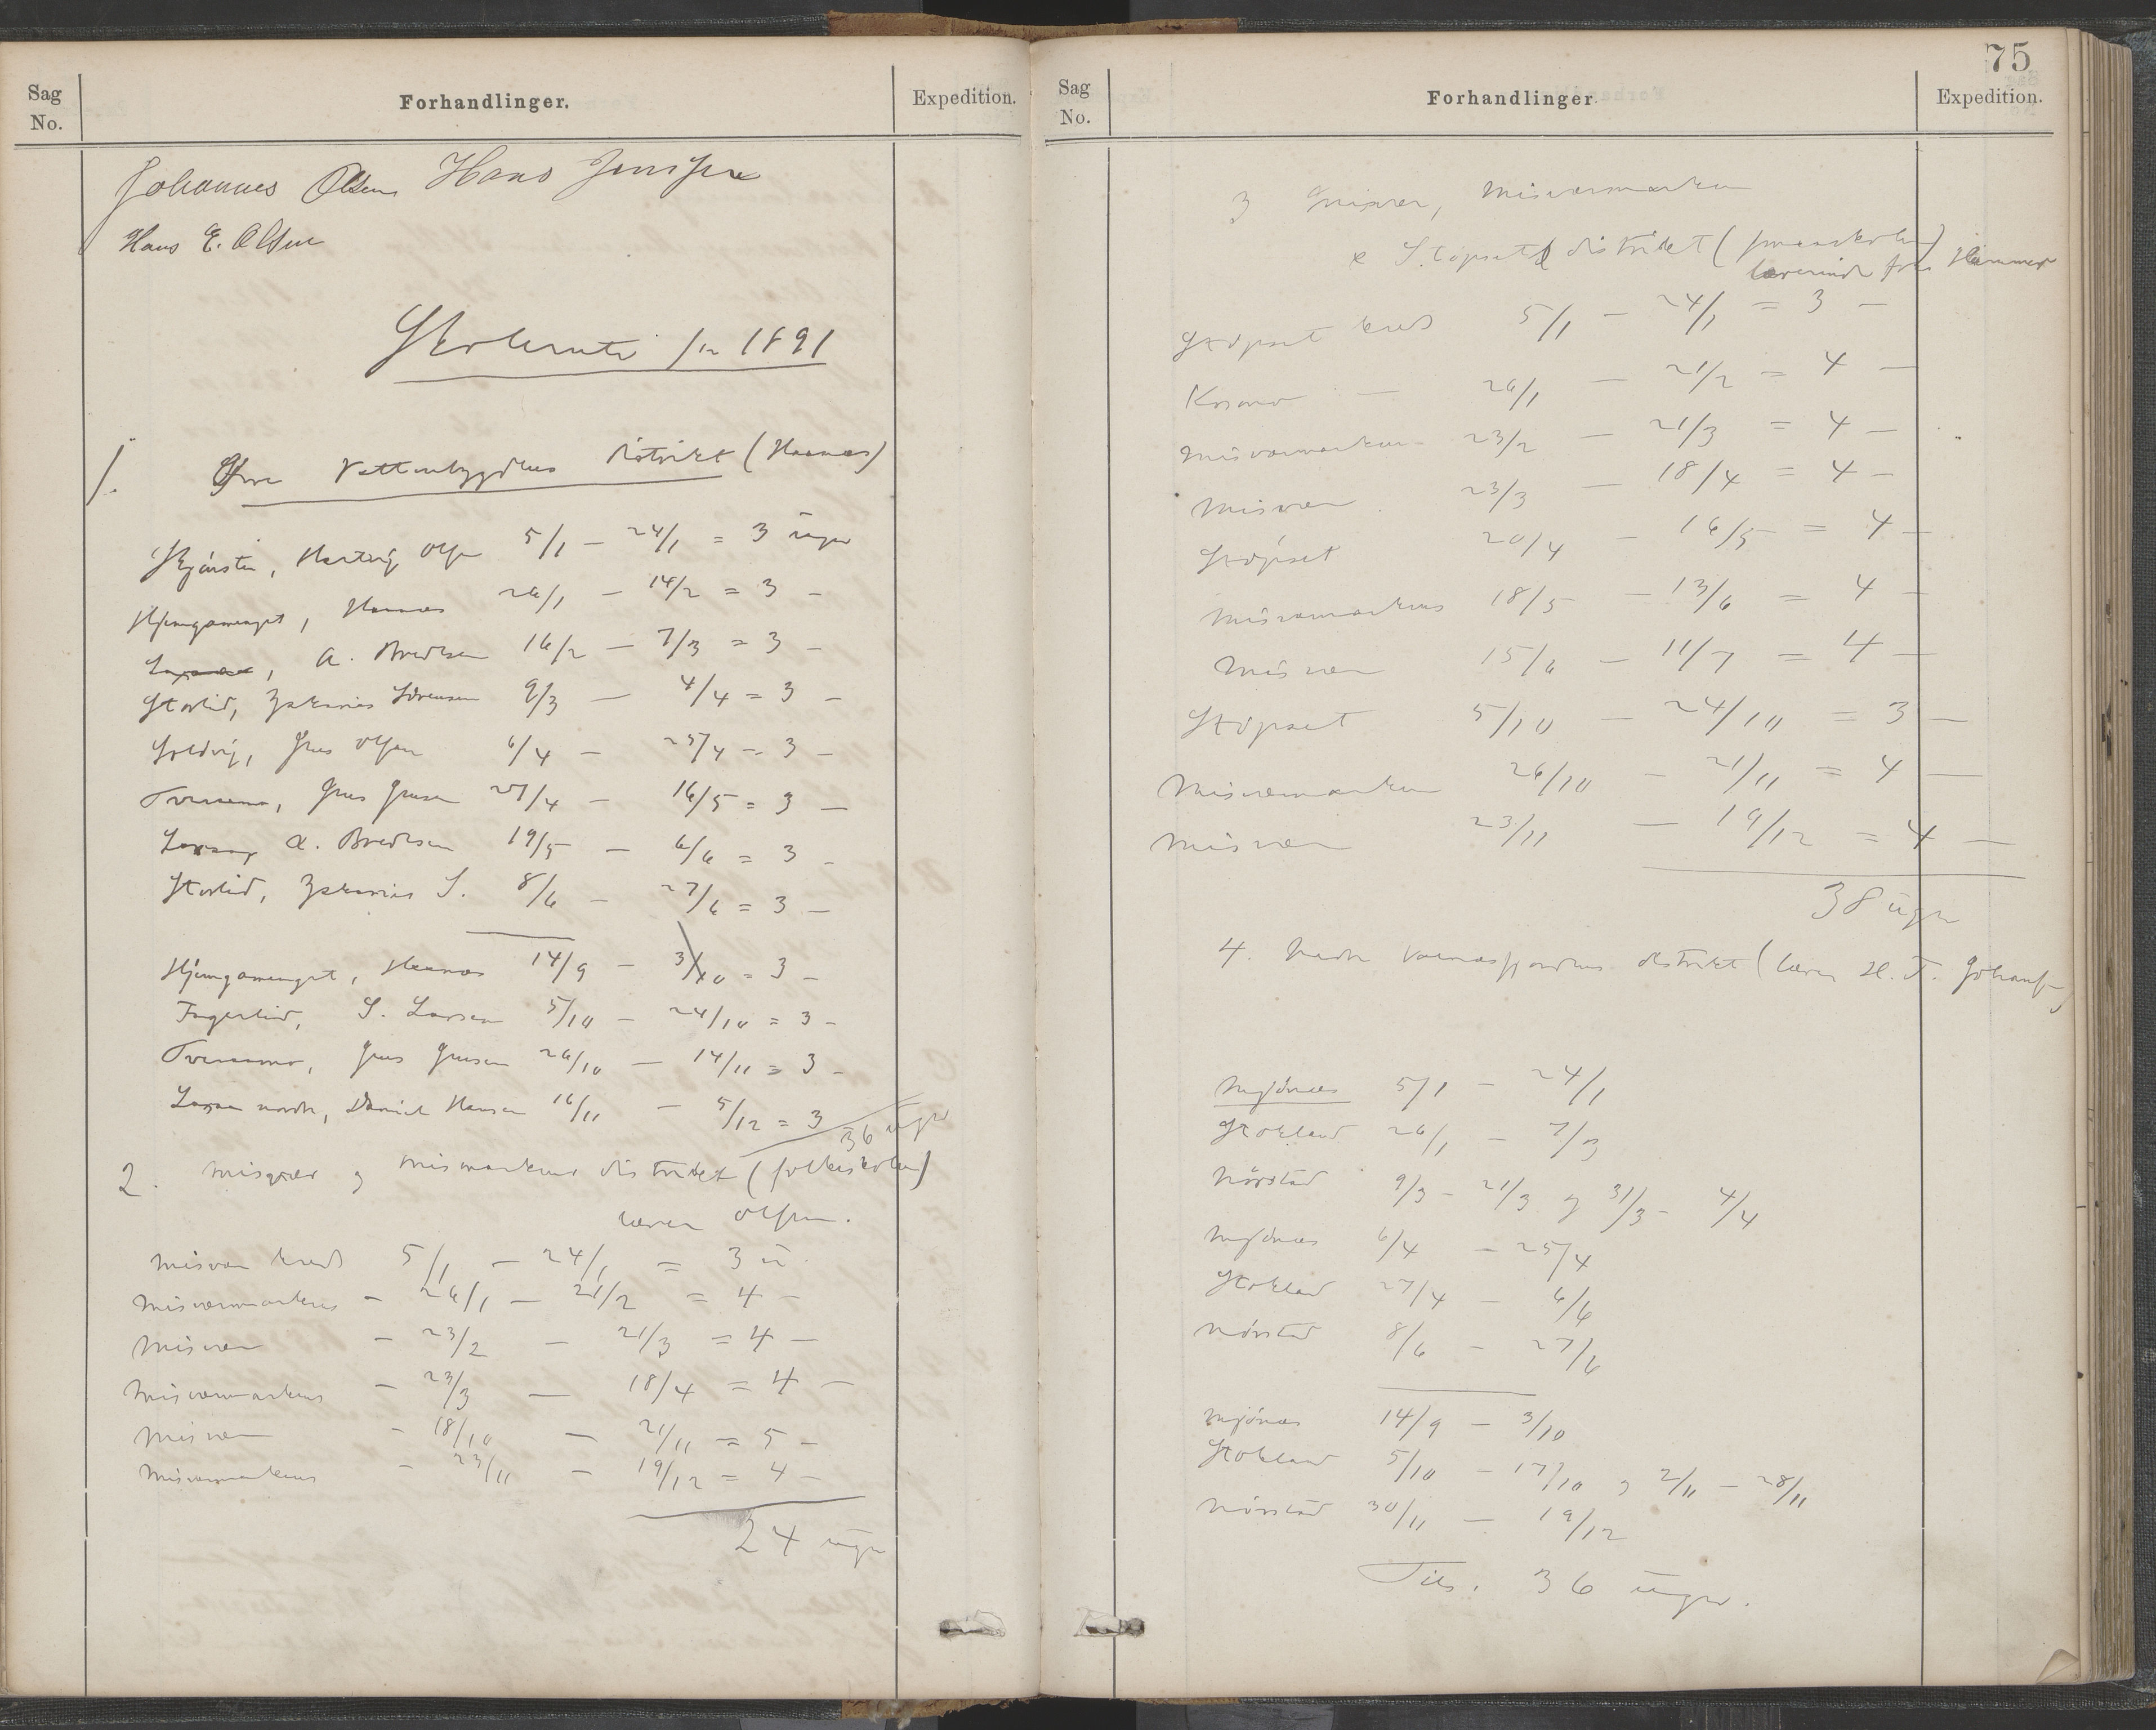 Sag
No.
Forhandlinger.
Expedition.
Johannes Olsen Hans Jensen
Hans E. Olsen
Skolerute for 1891
1. Øvre Vattenbygdens distrikt (Haanæs)
Skjørstu, Hartvig Olsen 5/1 - 24/1 = 3 uger
Hjemgamenget, Haanæs 26/1 - 14/2 = 3 -
A. Bredesen 16/2 - 7/3 = 3 -
Storlid, Zakarias Sørensen 9/3 - 4/4 = 3 -
Soldvig, Jens Olsen 6/4 - 25/4 = 3 -
Tveraamo, Jens Jensen 27/4 - 16/5 = 3 -
A. Bredesen 19/5 - 6/6 = 3 -
Storlid, Zakarias S. 8/6 - 27/6 = 3 -
Hjemgamenget, Haanæs 14/9 - 3/10 = 3 -
Fagerlid, S. Larsen 5/10 - 24/10 = 3 -
Tveraamo, Jens Jensen 26/10 - 14/11 = 3 -
Laxaa nordre, Daniel Hansen 16/11 - 5/12 = 3
36 uger
2. Misvær og Misværmarkens distrikt (folkeskolen)
lærer Olsen.
Misvær kreds 5/1 - 24/1 = 3 u.
Misværmarkens - 26/1 - 21/2 = 4 -
Misvær - 23/2 - 21/3 = 4 -
Misværmarkens - 23/3 - 18/4 = 4 -
Misvær - 18/10 - 21/11 = 5 -
Misværmarkens - 23/11 - 19/12 = 4 -
24 uger
75
Sag
No.
Forhandlinger
Expedition.
3 Misvær, Misværmarken
& Støpset distriktet (smaaskolen)
lærerinde frk. Hammer
Støpset kreds 5/1 - 24/1 = 3 -
Kosmo - 26/1 - 21/2 = 4 -
Misværmarken 23/2 - 21/3 = 4 -
Misvær 23/3 - 18/4 = 4 -
Støpset 20/4 - 16/5 = 4 -
Misværmarkens 18/5 - 13/6 = 4 -
Misvær 15/6 - 11/7 = 4 -
Støpset 5/10 - 24/10 = 3 -
Misværmarken 26/10 - 21/11 = 4 -
Misvær 23/11 - 19/12 = 4 -
38 uger
4. Nedre Valnesfjordens distrikt (lærer H. T. Johans.)
Mjønæs 5/1 - 24/1
Stokland 26/1 - 7/3
Nørstad 9/3 - 21/3 og 31/3 - 4/4
Mjønæs 6/4 - 25/4
Stokland 27/4 - 6/6
Nørstad 8/6 - 27/6
Mjønæs 14/9 - 3/10
Stokland 5/10 - 17/10 og 2/11 - 28/11
Nørstad 30/11 - 19/12
Tils. 36 uger.